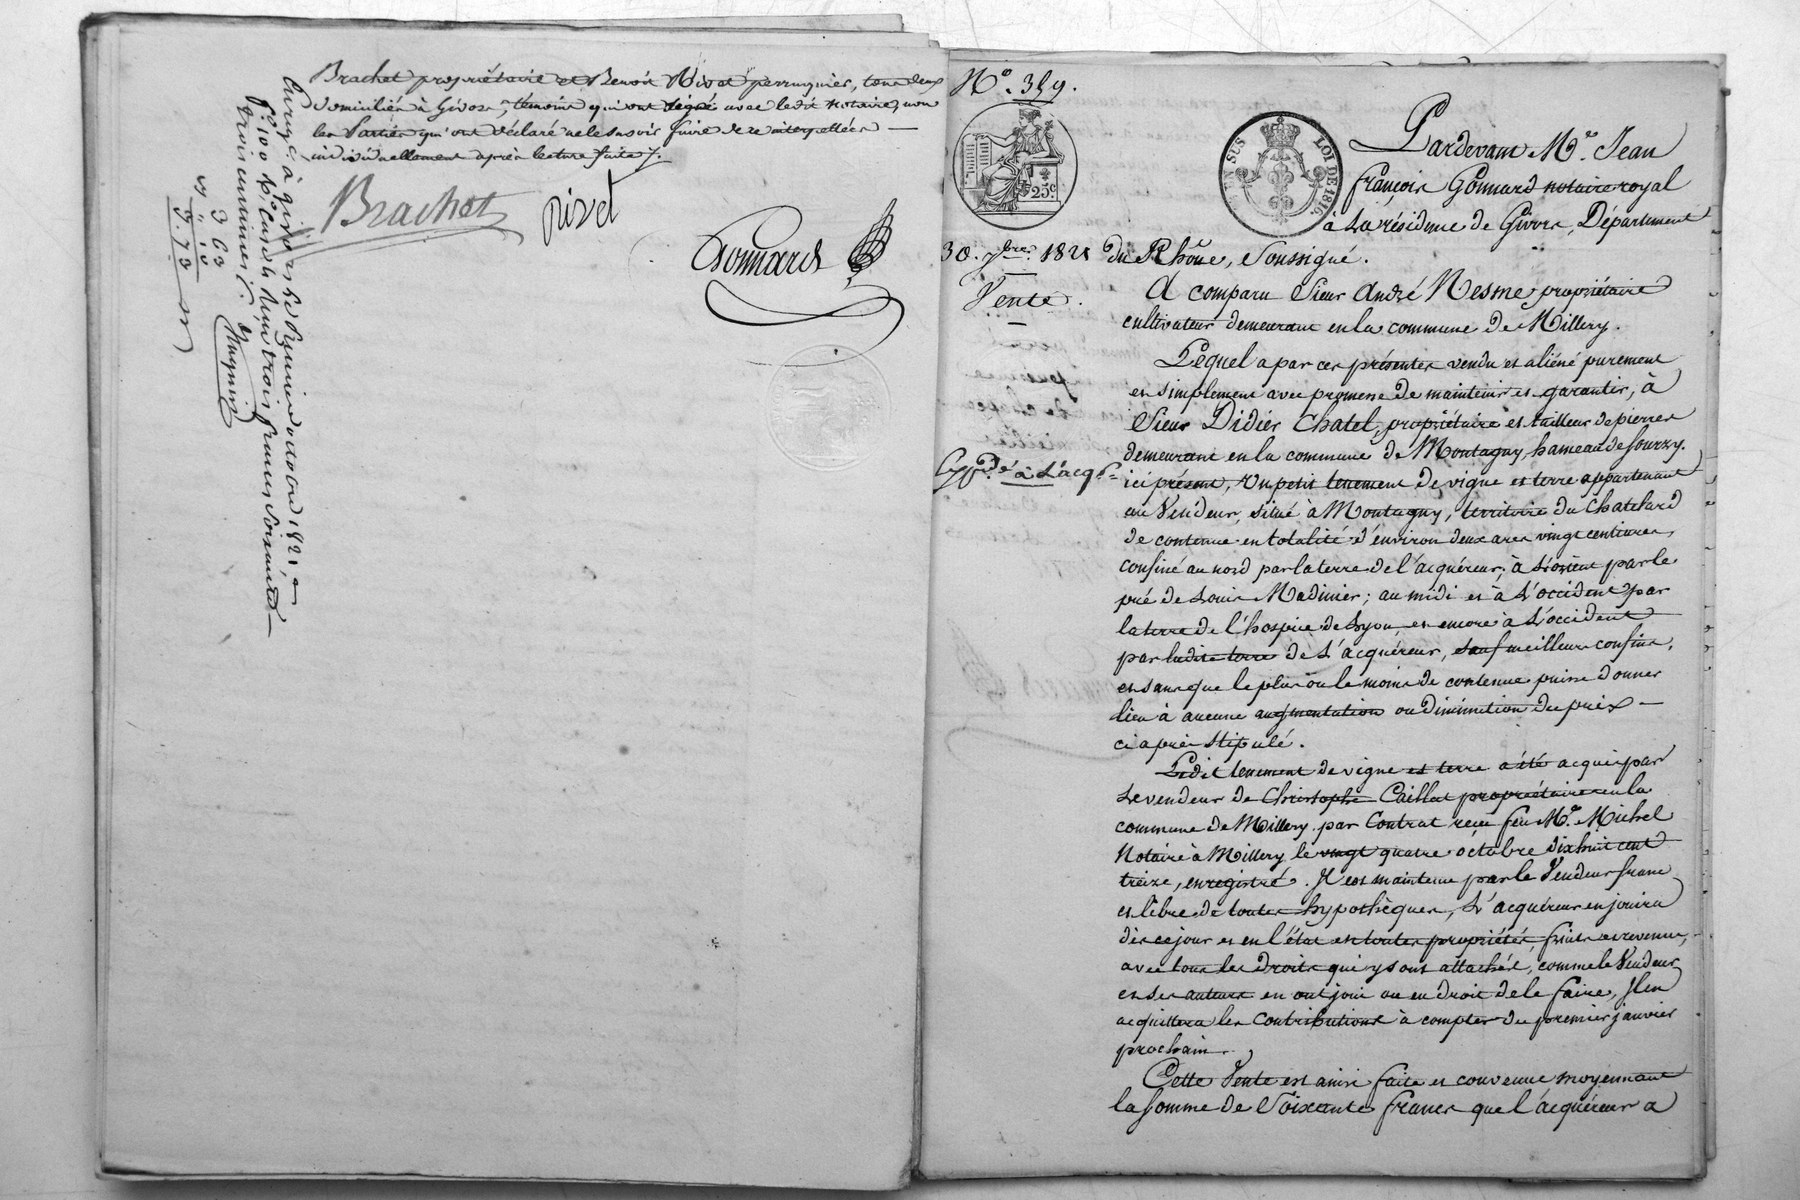 Brachet propriétaire et Benoit Rivet perruquier, tous deux
domiciliés à Givors, témoins qui ont signé avec ledit notaire, non
les Parties qui ont déclaré ne le savoir faire de ce interpellées
individuellement après lecture faite /.
Brachet
Rivet
Gonnard
Enregé à givors le Premier octobre 1821
fo 100 Ro Case 4 Reçu trois francs soixante
trois centimes
3 63
3.73
No. 359.
25c
EN SUS
LOI DE 1816
30. 7bre 1821
Vente.
Expon dé à L'acqr
Pardevant Me. Jean
françois Gonnard notaire royal
à La résidence de Givors, Département
du Rhône, Soussigné.
A comparu Sieur André Nesme propriétaire
cultivateur demeurant en la commune de Millery.
Lequel a par ces présentes vendu et aliéné purement
et simplement avec promesse de maintenir et garantir, à
Sieur Didier Chatel, propriétaire et tailleur de pierres
demeurant en la commune de Montagny, hameau de Sourzy.
ici présent, Un petit tenement de vigne et terre appartenant
au Vendeur, situé à Montagny, territoire du Chatelard
de contenue en totalité d'environ deux ares vingt centiares,
confiné au nord par la terre de l'acquéreur; à L'orient par le
pré de Louis Madinier; au midi et à L'occident par
la terre de l'hospice de Lyon, et encore à L'occident
par ladite terre de L'acquéreur, sauf meilleurs confins,
et sans que le plus ou le moins de contenue puisse donner
lieu à aucune augmentation ou diminution du prix
ci après stipulé.
Ledit tenement de vigne et terre a été acquis par
Le vendeur de Christophe Caillat propriétaire en la
commune de Millery par Contrat reçu feu Me. Michel
Notaire à Millery le vingt quatre octobre dix huit cent
treize, enregistré. Il est maintenu par le Vendeur franc
et libre de toutes hypothèques, L'acquéreur en jouira
dès ce jour et en l'état en toutes propriétés, fruits et revenus,
avec tous les droits qui y sont attachés, comme le Vendeur
et ses auteurs en ont joui ou eu droit de le faire, Il en
acquittera les Contributions à compter du premier janvier
prochain.
Cette Vente est ainsi faite et convenue moyennant
la somme de Soixante francs que l'acquéreur a